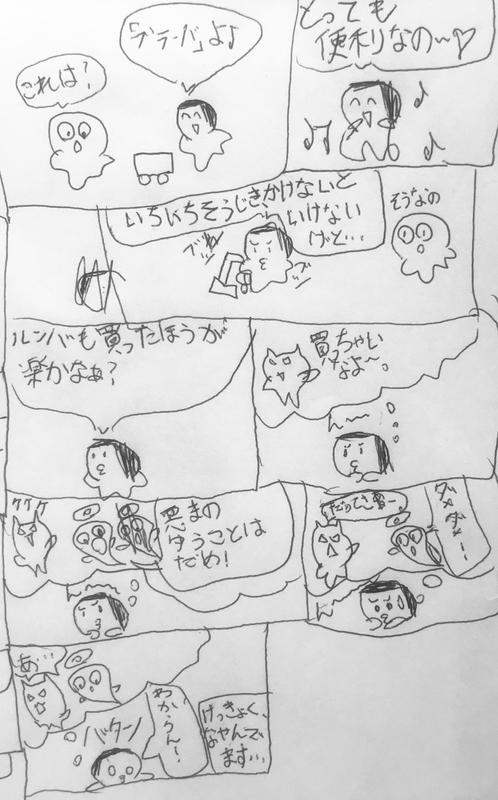 これは?
「ブラーバ」よ♪
とっても
便利なの〜♡
いちいちそうじきかけないと
いけない
けど…
そうなの
ルンバも買ったほうが
楽かなぁ?
買っちゃい
なよ〜。
ケケケ
悪まの
ゆうことは
だめ!
ダメダメー!
あ…
バターン
わからん〜!
けっきょく、
なやんで
ます…